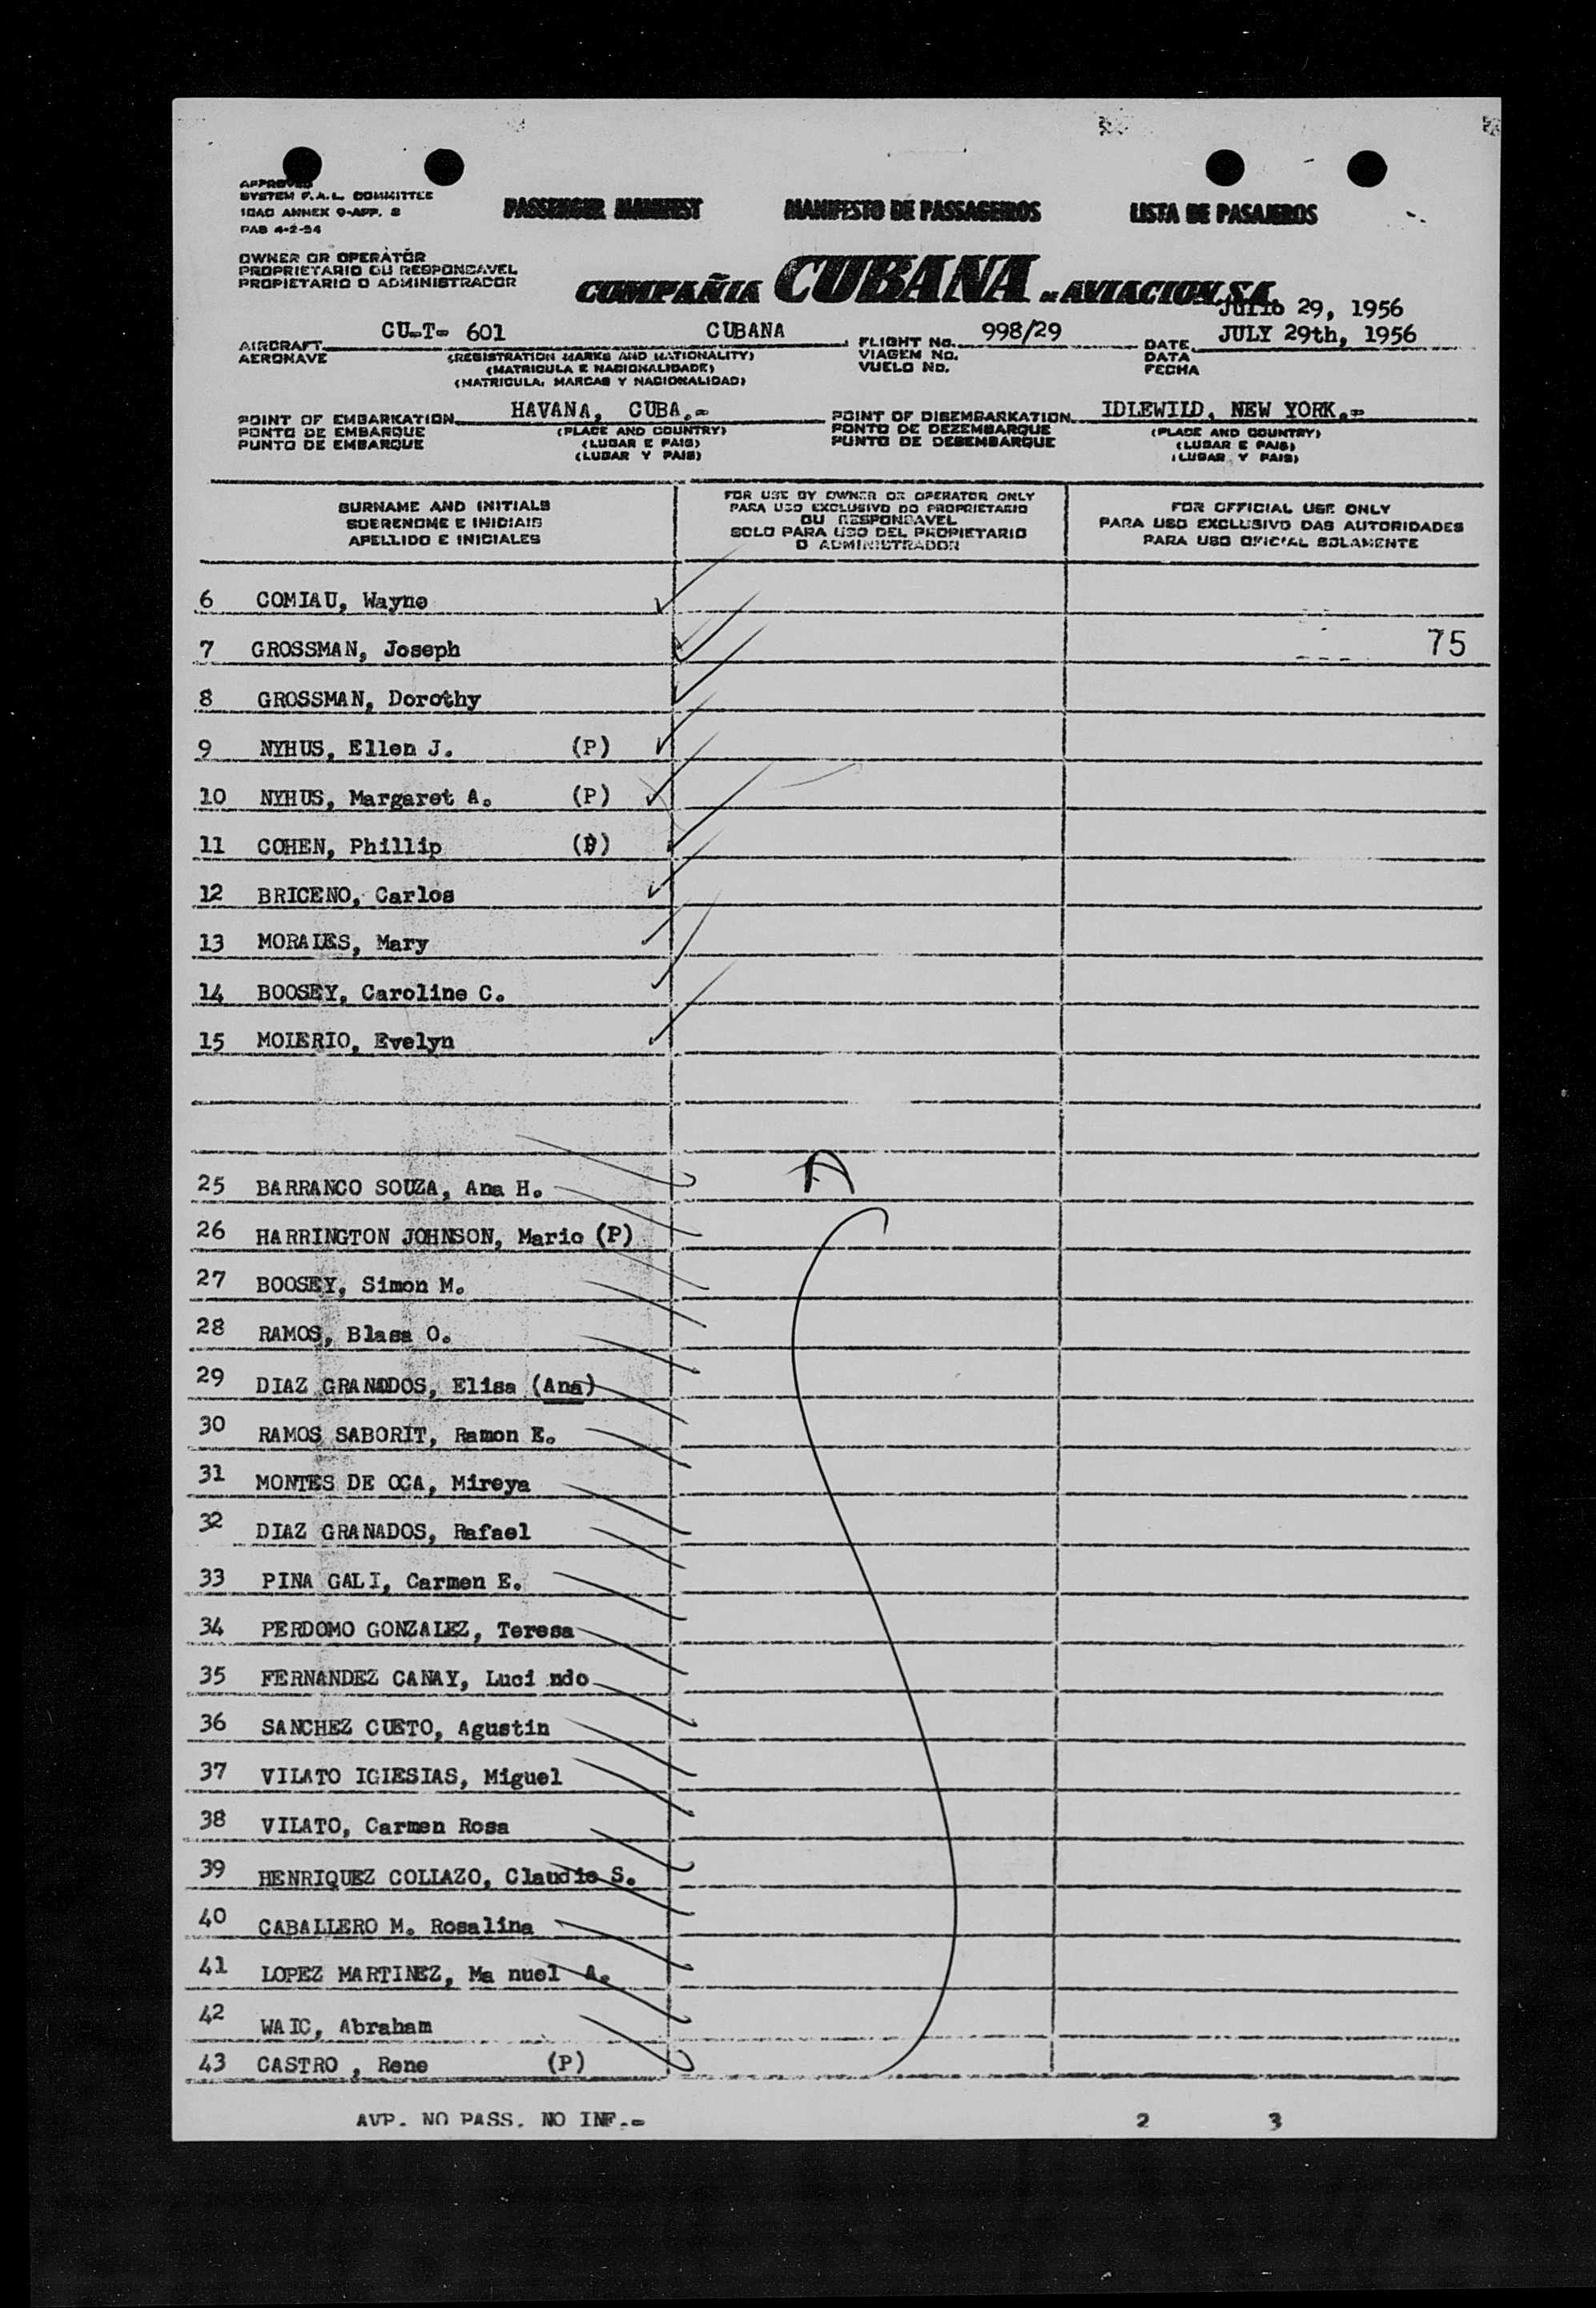 APPROVED
SYSTEM F.A.L. COMMITTEE
ICAO ANNEX 9-APP. 8
PAB 4-2-54
PASSENGER MANIFEST MANIFESTO DE PASSAGEIROS LISTA DE PASAJEROS
OWNER OR OPERATOR
PROPRIETARIO OU RESPONSAVEL
PROPIETARIO O ADMINISTRADOR
COMPAÑIA CUBANA DE AVIACION, S.A.
Julio 29, 1956
AIRCRAFT CU-T- 601 CUBANA FLIGHT No. 998/29 DATE JULY 29th, 1956
AERONAVE (REGISTRATION MARKS AND NATIONALITY) VIAGEM No. DATA
(MATRICULA E NACIONALIDADE) VUELO No. FECHA
(MATRICULA, MARCAS Y NACIONALIDAD)
POINT OF EMBARKATION HAVANA, CUBA.= POINT OF DISEMBARKATION IDLEWILD, NEW YORK.=
PONTO DE EMBARQUE (PLACE AND COUNTRY) PONTO DE DEZEMBARQUE (PLACE AND COUNTRY)
PUNTO DE EMBARQUE (LUGAR E PAIS) PUNTO DE DESEMBARQUE (LUGAR E PAIS)
(LUGAR Y PAIS) (LUGAR Y PAIS)
SURNAME AND INITIALS
SOBRENOME E INICIAIS
APELLIDO E INICIALES
FOR USE BY OWNER OR OPERATOR ONLY
PARA USO EXCLUSIVO DO PROPRIETARIO
OU RESPONSAVEL
SOLO PARA USO DEL PROPIETARIO
O ADMINISTRADOR
FOR OFFICIAL USE ONLY
PARA USO EXCLUSIVO DAS AUTORIDADES
PARA USO OFICIAL SOLAMENTE
6 COMIAU, Wayne
7 GROSSMAN, Joseph 75
8 GROSSMAN, Dorothy
9 NYHUS, Ellen J. (P)
10 NYHUS, Margaret A. (P)
11 COHEN, Phillip (P)
12 BRICENO, Carlos
13 MORALES, Mary
14 BOOSEY, Caroline C.
15 MOLERIO, Evelyn
25 BARRANCO SOUZA, Ana H. A
26 HARRINGTON JOHNSON, Mario (P)
27 BOOSEY, Simon M.
28 RAMOS, Blasa O.
29 DIAZ GRANADOS, Elisa (Ana)
30 RAMOS SABORIT, Ramon E.
31 MONTES DE OCA, Mireya
32 DIAZ GRANADOS, Rafael
33 PINA GALI, Carmen E.
34 PERDOMO GONZALEZ, Teresa
35 FERNANDEZ CANAY, Luci ndo
36 SANCHEZ CUETO, Agustin
37 VILATO IGLESIAS, Miguel
38 VILATO, Carmen Rosa
39 HENRIQUEZ COLLAZO, Claudio S.
40 CABALLERO M. Rosalina
41 LOPEZ MARTINEZ, Ma nuel A.
42 WAIC, Abraham
43 CASTRO , Rene (P)
AVP. NO PASS. NO INF.= 2 3